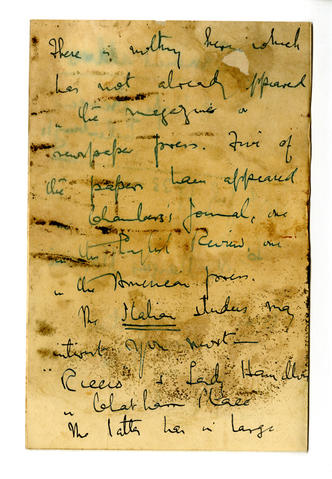 There is nothing here which
has not already appeared
in the magazine or
newspaper press. Five of
the papers have appeared
in Chambers's Journal, one
in the English Review, one
in the American press.
The Italian studies may
interest you most —
" & Lady Hamilton
in Chatham Place
The latter has in large